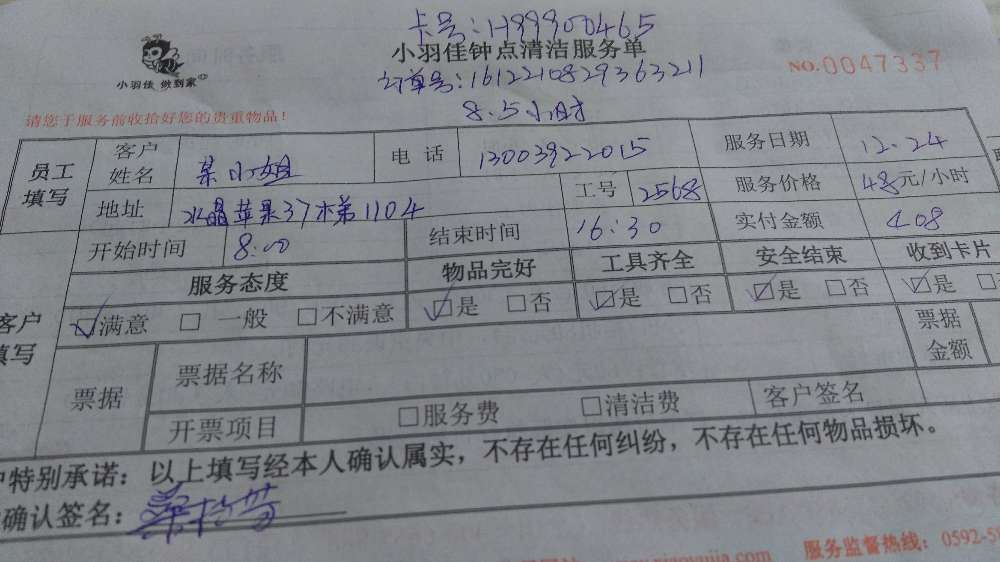 卡号:H99900465
小羽佳钟点清洁服务单
订单号:1612210829363211
NO.0047337
小羽佳 做到家
8.5小时
请您于服务前收拾好您的贵重物品!
员工填写 客户姓名 某小姐 电话 13003922015 服务日期 12.24
地址 水晶苹果37木弟1104 工号 2568 服务价格 48元/小时
开始时间 8:00 结束时间 16:30 实付金额 408
客户填写 服务态度 物品完好 工具齐全 安全结束 收到卡片
☑满意 □一般 □不满意 ☑是 □否 ☑是 □否 ☑是 □否 ☑是
票据 票据名称 票据金额
开票项目 □服务费 □清洁费 客户签名
户特别承诺:以上填写经本人确认属实,不存在任何纠纷,不存在任何物品损坏。
确认签名:
服务监督热线:0592-5